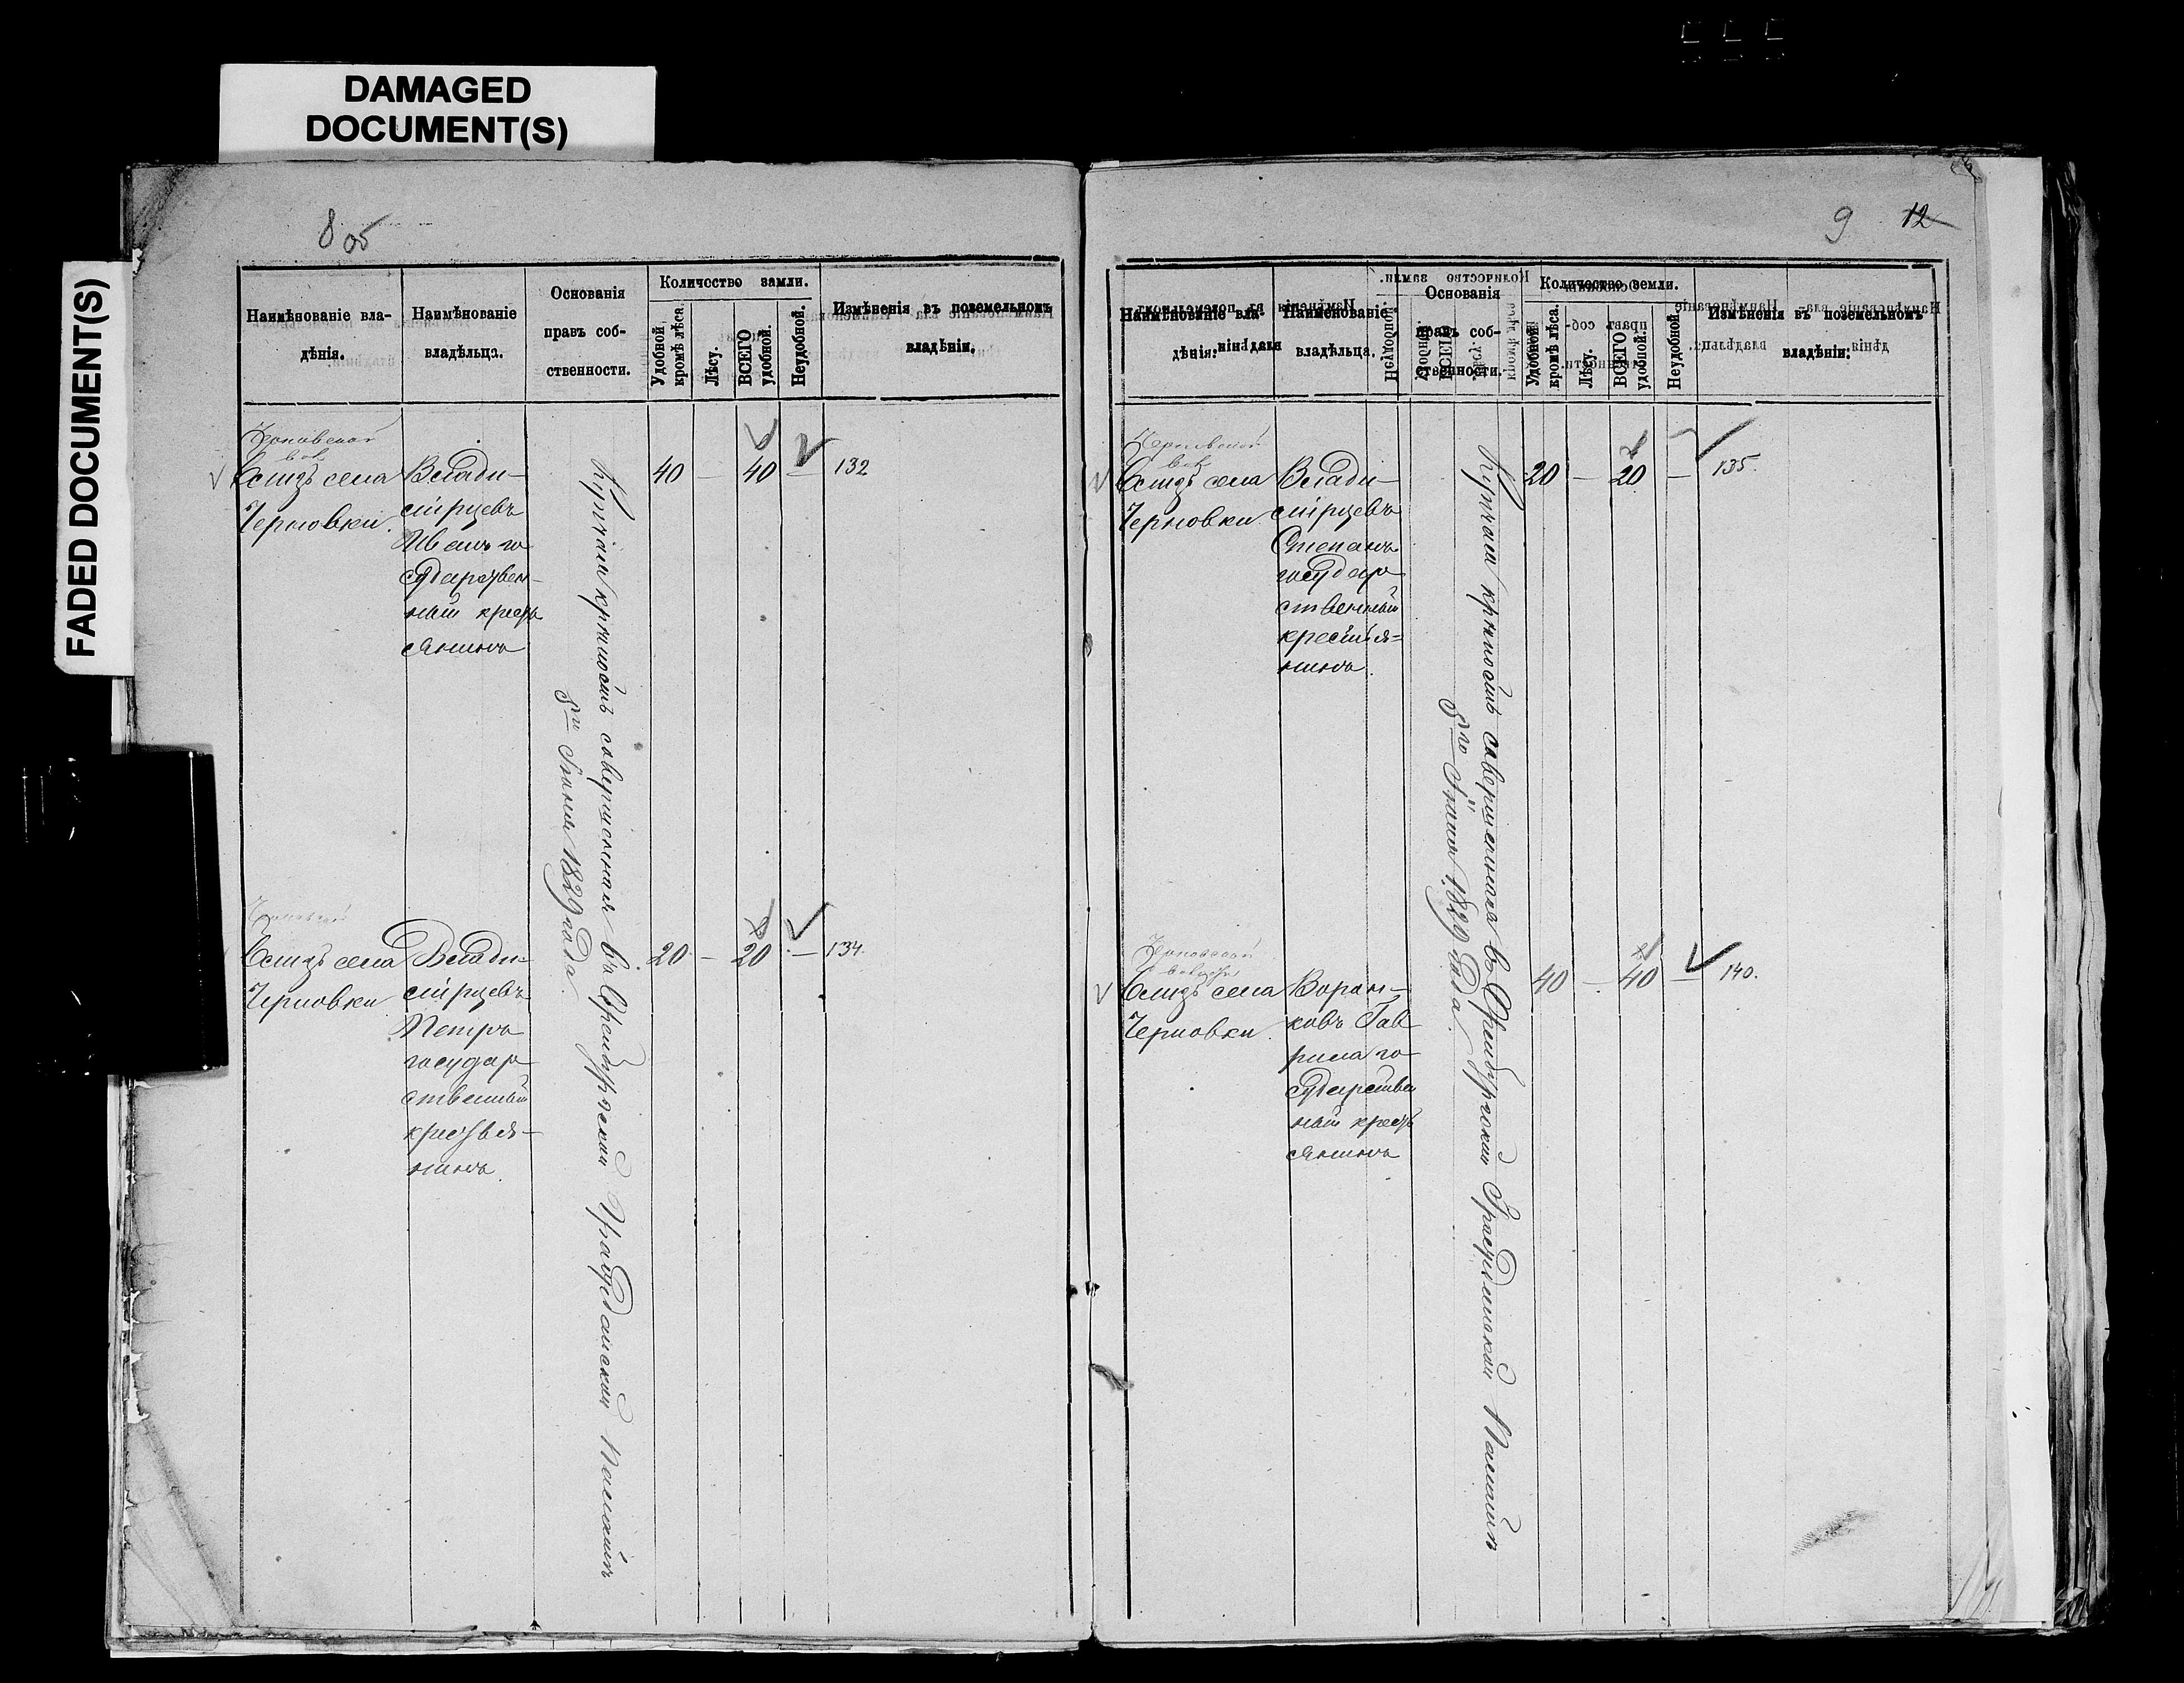 DAMAGED
DOCUMENT(S)
FADED DOCUMENT(S)
8 об
Наимѣнованіе вла-
дѣнія.
Наимѣнованіе
владѣльца.
Основанія
правъ соб-
ственности.
Количество земли.
Удобной
кромѣ лѣса.
Лѣсу.
ВСЕГО
удобной.
Неудобной.
Измѣненія въ поземельномъ
владѣніи.
Черновской
вол
близъ села
Черновки.
Влади-
мірцевъ
Иванъ го
сударствен-
ный кресть
янинъ
40 — 40 — 132
Купчая крѣпость совершенная въ Оренбургской Гражданской Палатѣ
5го Іюня 1829 года.
Черновской
близъ села
Черновки
Влади-
мірцевъ
Петръ
государ
ственный
крестья-
нинъ.
20 — 20 — 134.
9 12
Наимѣнованіе вла-
дѣнія.
Наименованіе
владѣльца.
Основанія
правъ соб-
ственности.
Количество земли.
Удобной
кромѣ лѣса.
Лѣсу.
ВСЕГО
удобной.
Неудобной.
Измѣненія въ поземельномъ
владѣніи.
Черновской
вол
близъ села
Черновки
Влади-
мірцевъ
Степанъ
государ
ственный
крестья=
нинъ.
20 — 20 — 135.
Купчая крѣпость совершенная въ Оренбургской Гражданской Палатѣ
5го Іюня 1829 года.
Черновской
волости
близъ села
Черновки.
Ворон-
ковъ Гав
рила го
сударствен
ный кресть
янинъ
40 — 40 — 140.